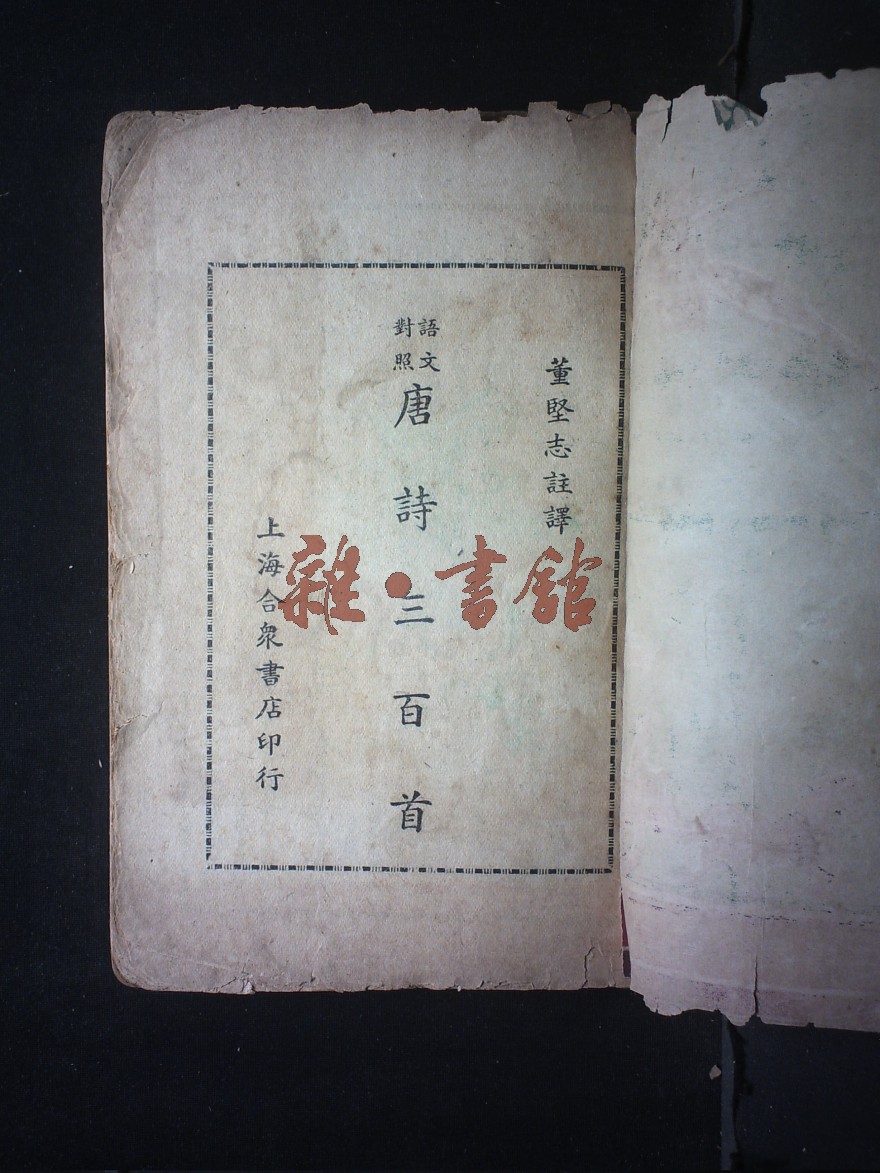 董堅志註譯
語文
對照
唐詩三百首
上海合衆書店印行
雜·書館